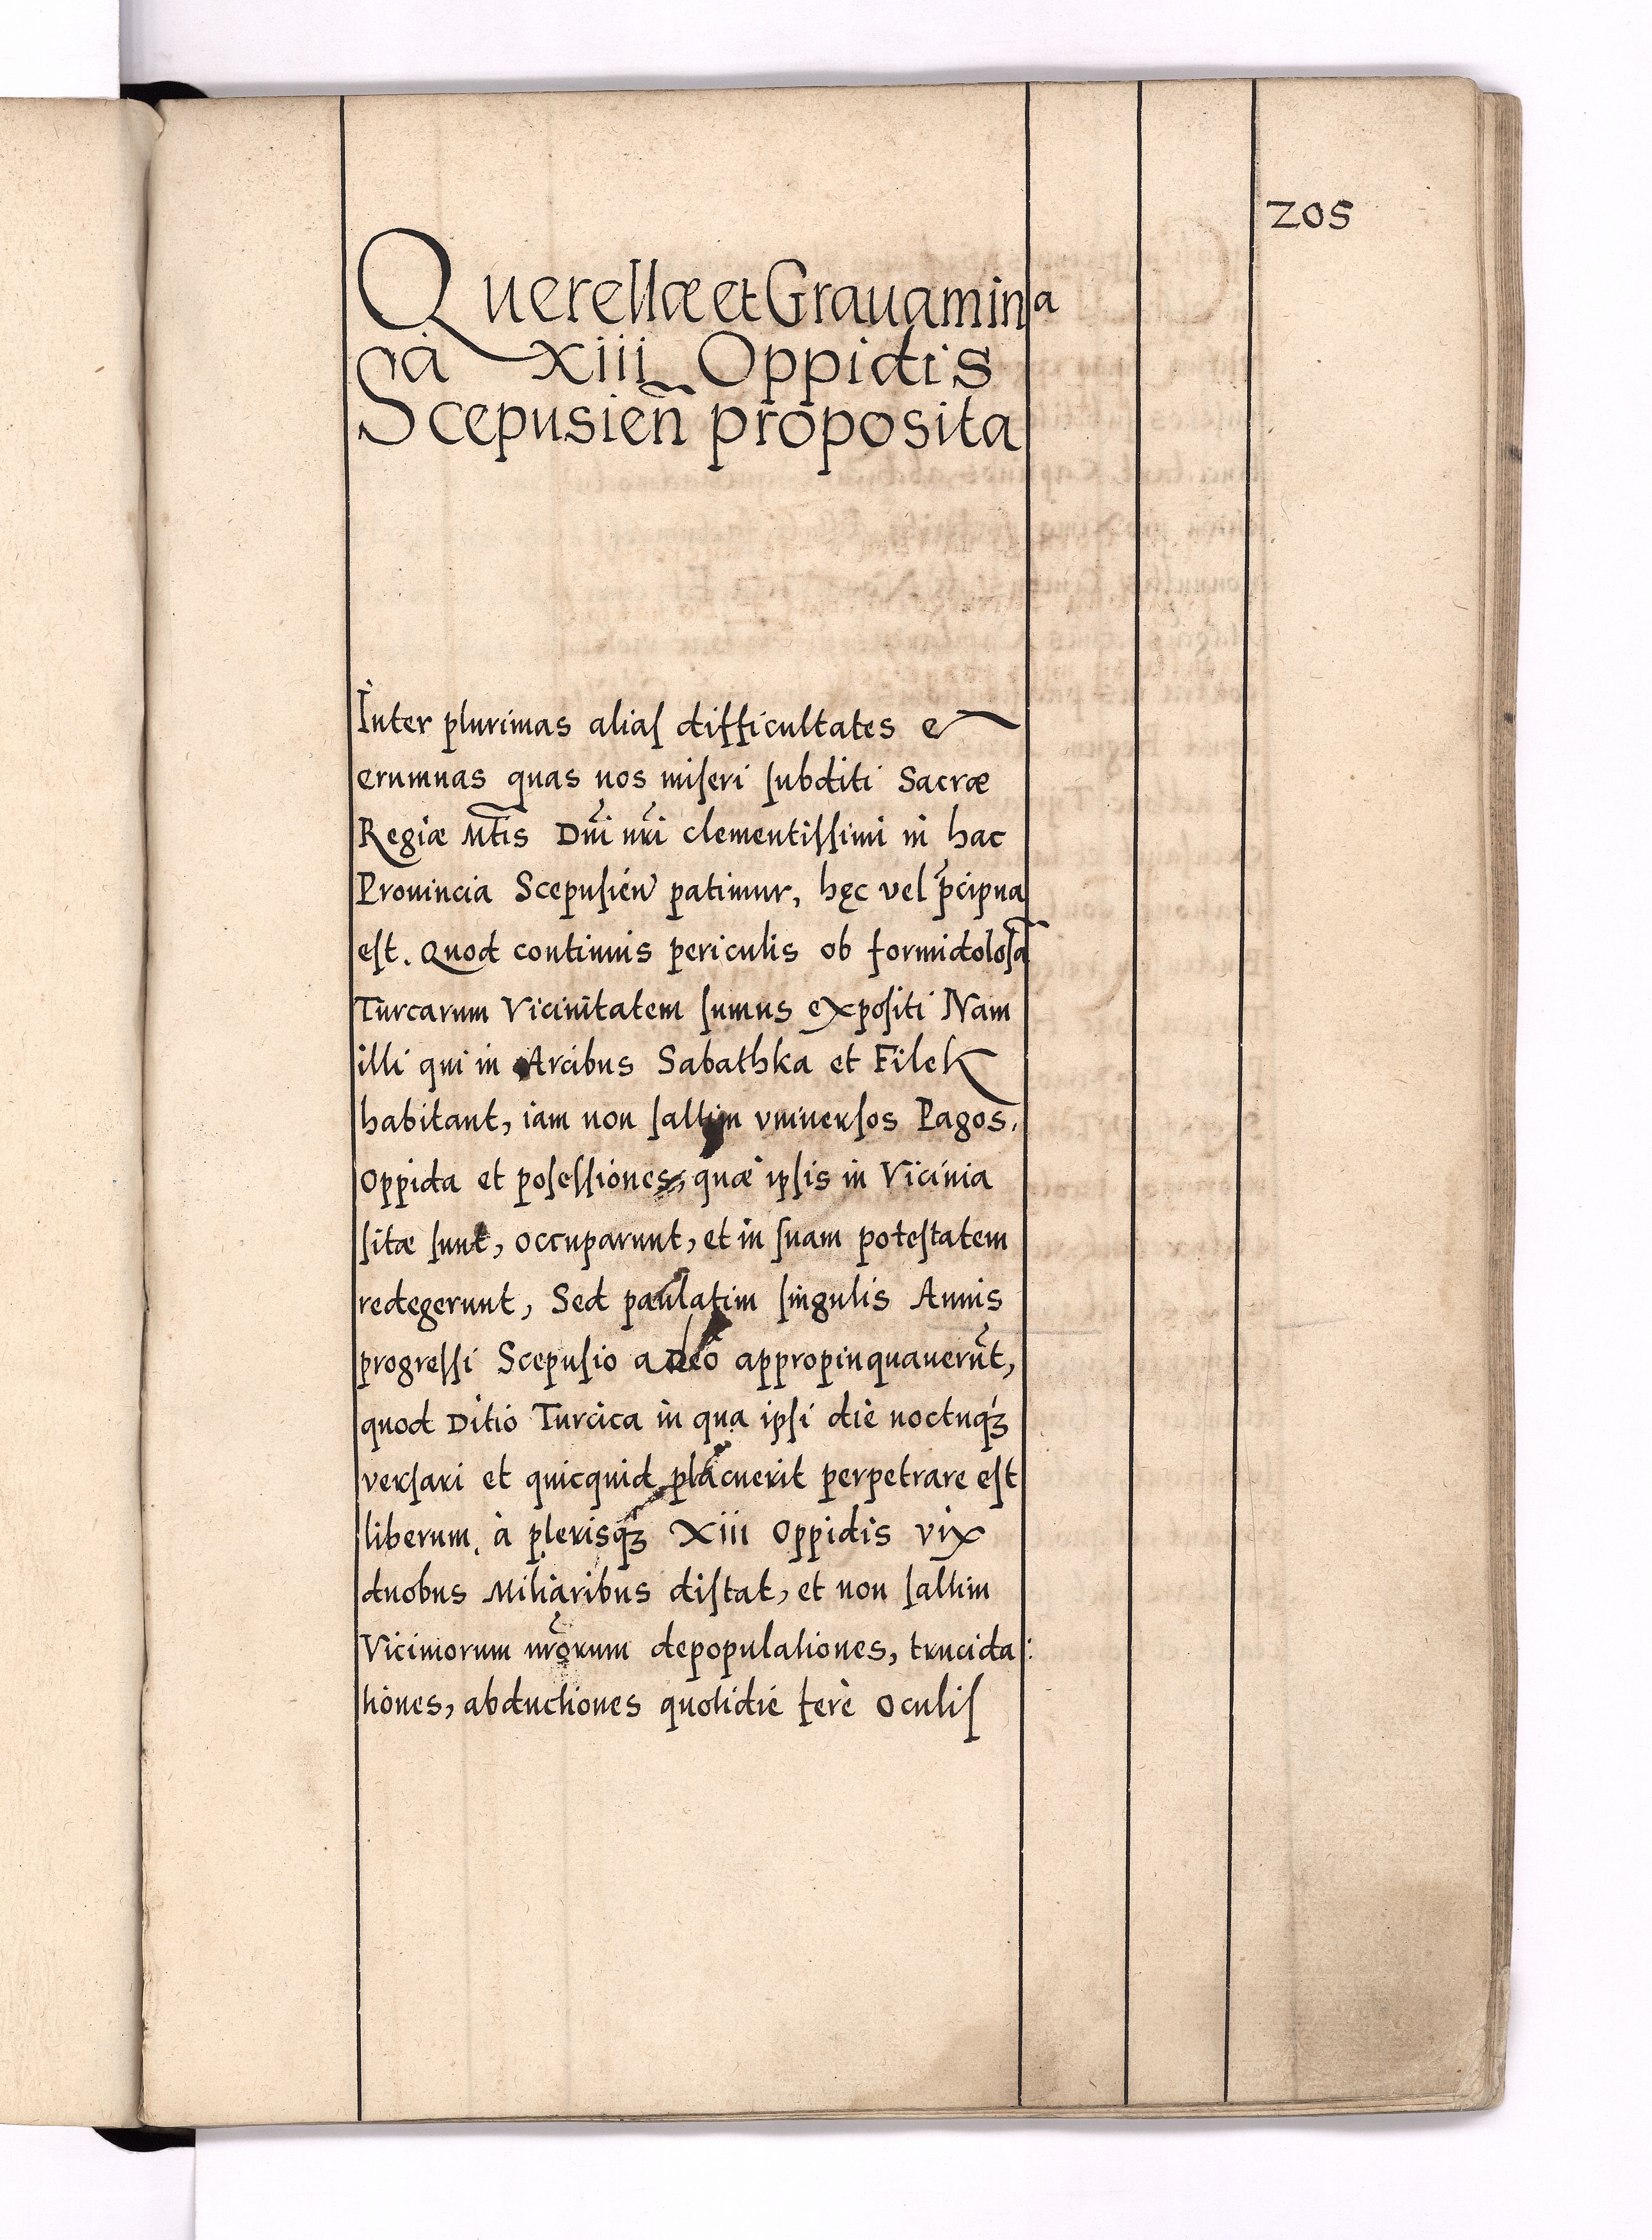 205
Querellæ et Grauamina
à xiii Oppidis
Scepusien̄ proposita
Inter plurimas aliaſ difficultates e
erumnas quas nos miſeri ſubditi Sacræ
Regiæ Mtis Dn̄i nr̄i clementiſſimi in hac
Prouincia Scepuſien̄ patimur, hęc vel p̄cipua
eſt. Quod continuis periculis ob formidoloſā
Turcarum Vicinitatem ſumus expoſiti Nam
illi qui in Arcibus Sabathka et Filek
habitant, iam non ſaltim vniuerſos Pagos,
Oppida et poſeſſiones, quæ ipſis in Vicinia
ſitæ ſunt, occuparunt, et in ſuam poteſtatem
redegerunt, Sed paulatim ſingulis Annis
progreſſi Scepuſio adeo appropinquauerūt,
quod Ditio Turcica in qua ipſi die noctuqꝫ
verſari et quicquid placuerit perpetrare eſt
liberum, à plerisqꝫ Xiii Oppidis vix
duobus Miliaribus diſtat, et non ſaltim
Vicinorum nr̄orum depopulationes, trucida:
tiones, abductiones quotidie ferè oculiſ